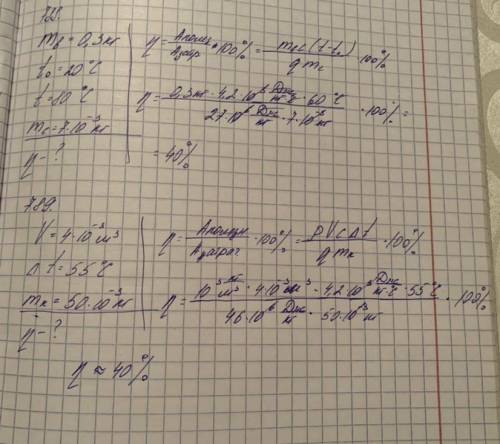 788.
mв = 0,3 кг
t₀ = 20°C
t = 80°C
mс = 7·10⁻³ кг
η - ?
η = Aполез/Aзатр · 100% = mвc(t-t₀)/qmс · 100%
η = 0,3кг · 4,2·10³ Дж/кг·°C · 60°C / 27·10⁶ Дж/кг · 7·10⁻³ кг · 100% =
= 40%
789.
V = 4·10⁻³ м³
Δt = 55°C
mк = 50·10⁻³ кг
η - ?
η = Aполезн/Aзатрач · 100% = ρVcΔt/qmк · 100%
η = 10³ кг/м³ · 4·10⁻³ м³ · 4,2·10³ Дж/кг·°C · 55°C / 46·10⁶ Дж/кг · 50·10⁻³ кг · 100%
η ≈ 40%